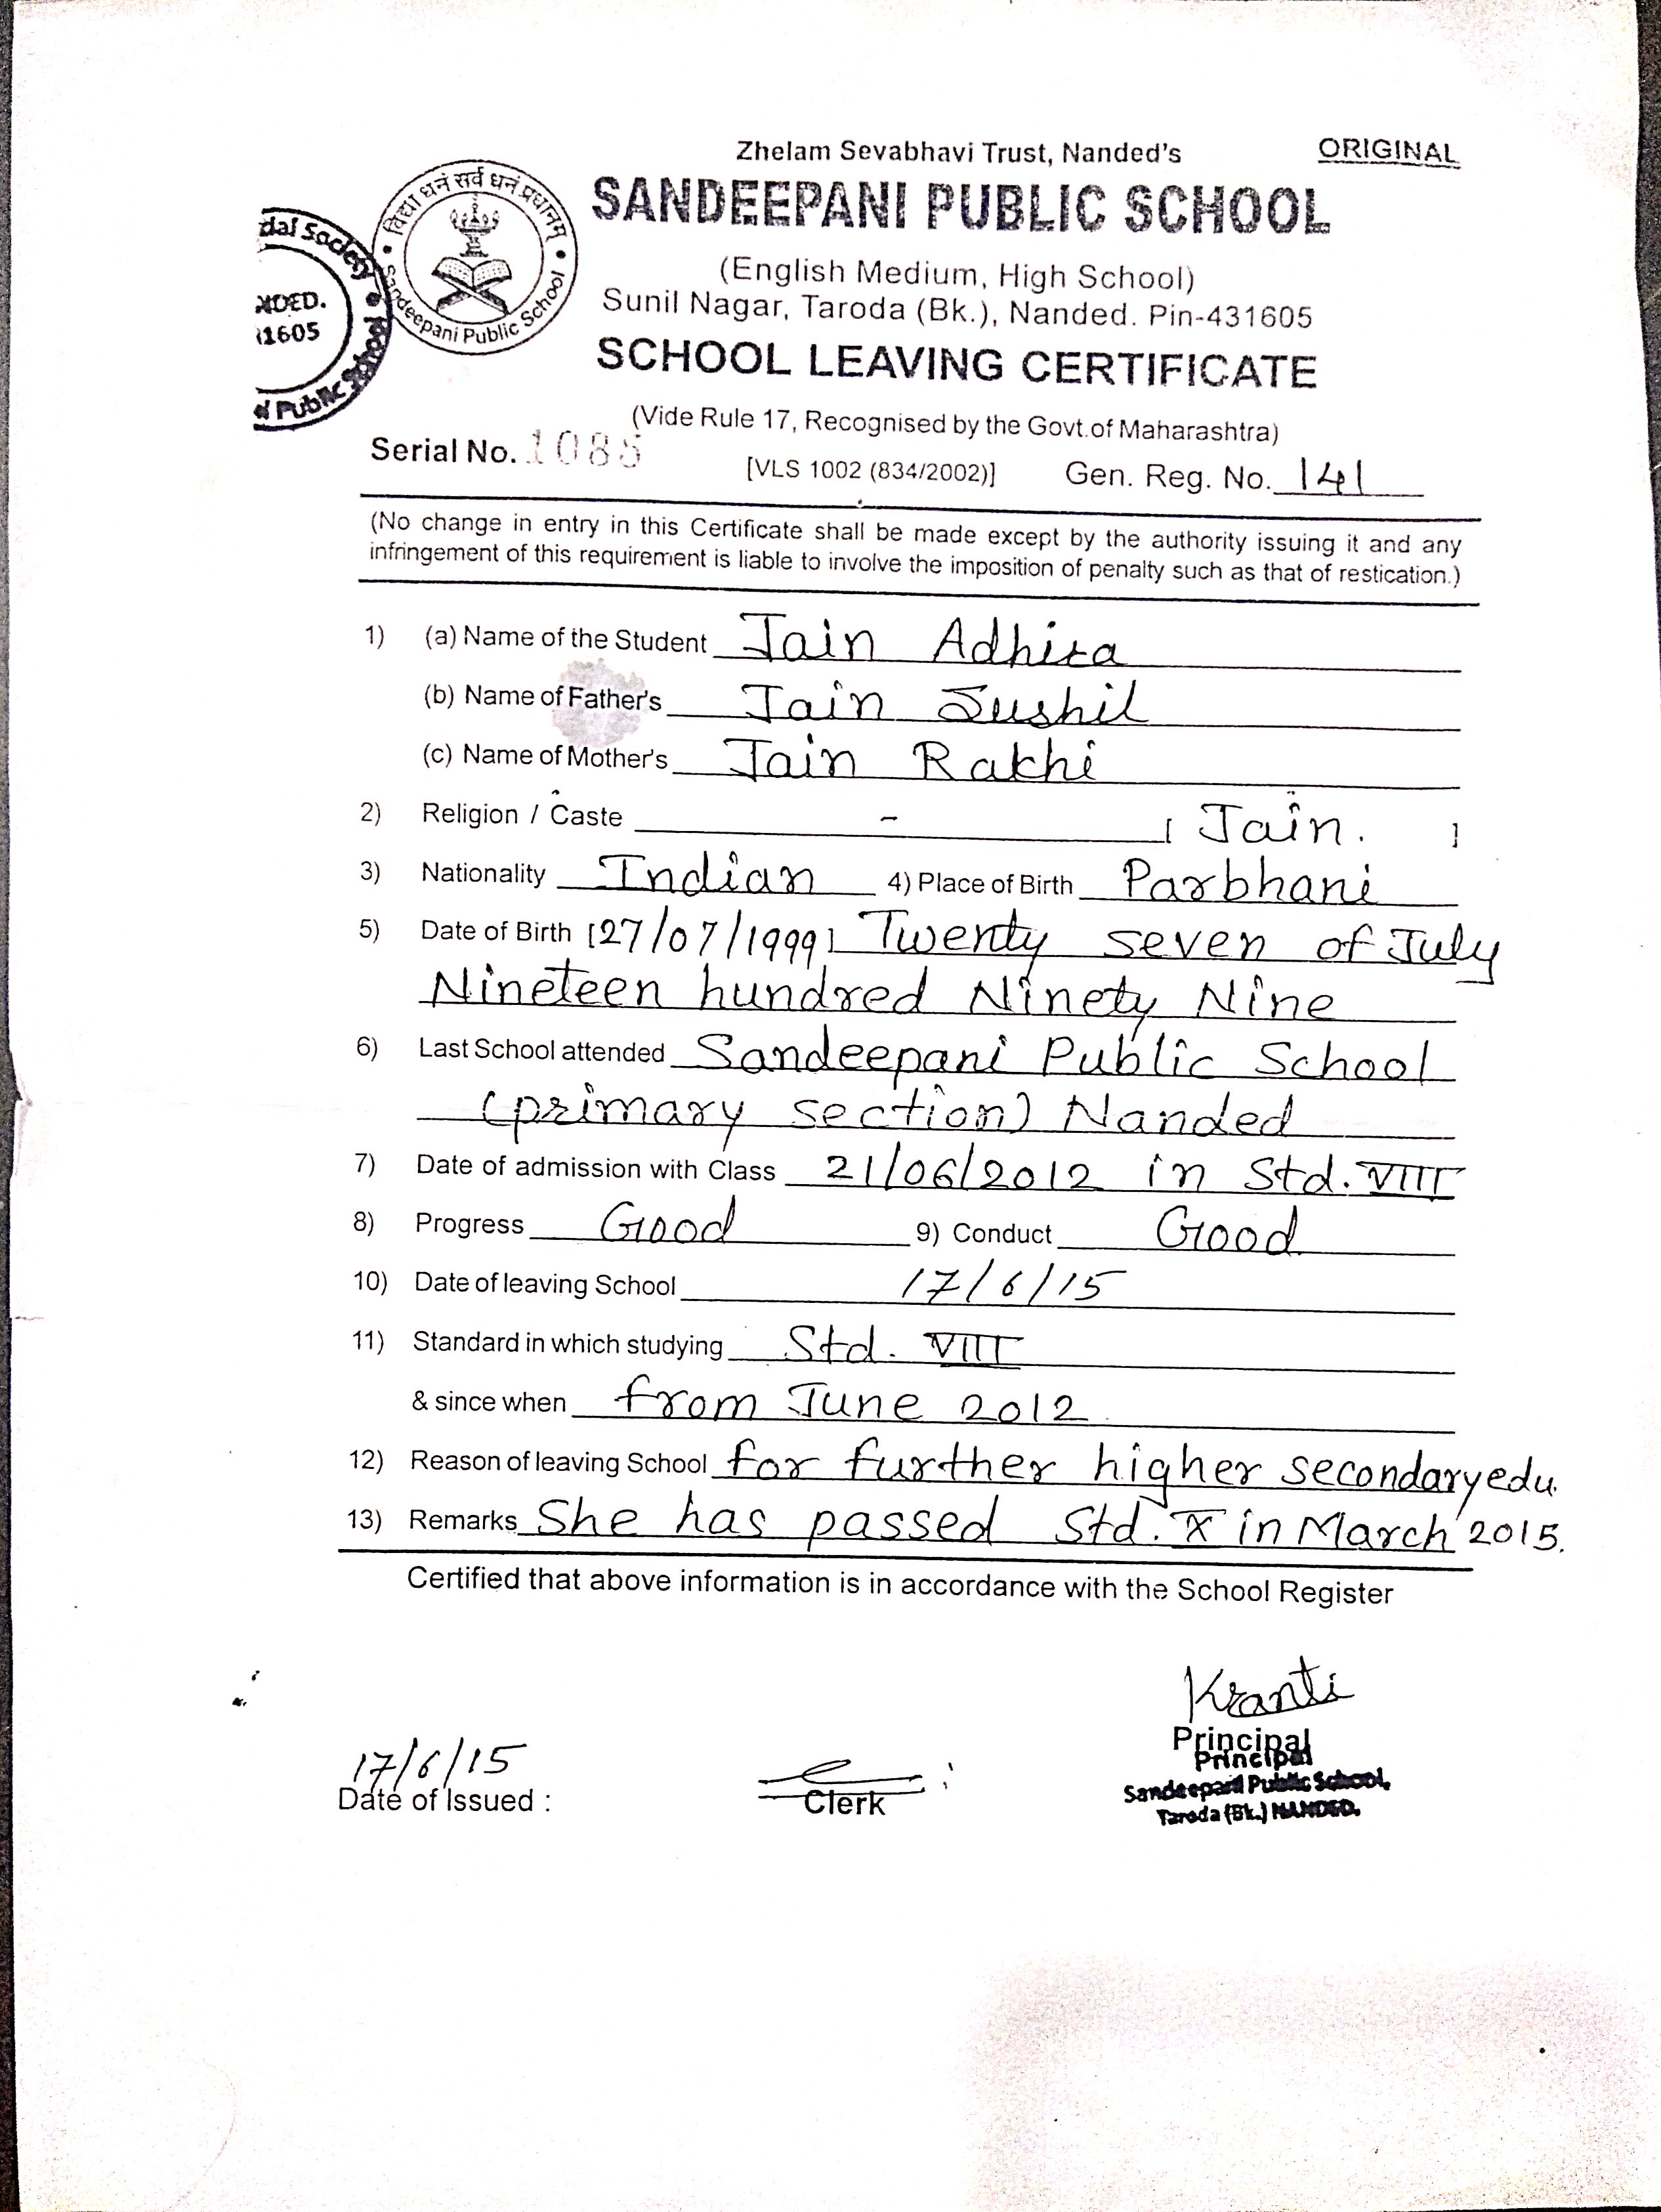 Zhelam Sevabhavi Trust, Nanded's
ORIGINAL
SANDEEPANI PUBLIC SCHOOL
विद्या धनं सर्व धनं प्रधानम्
Sandeepani Public School
dal Society
NDED.
1605
Public School
(English Medium, High School)
Sunil Nagar, Taroda (Bk.), Nanded. Pin-431605
SCHOOL LEAVING CERTIFICATE
(Vide Rule 17, Recognised by the Govt.of Maharashtra)
Serial No. 1085 [VLS 1002 (834/2002)] Gen. Reg. No. 141
(No change in entry in this Certificate shall be made except by the authority issuing it and any
infringement of this requirement is liable to involve the imposition of penalty such as that of restication.)
1) (a) Name of the Student Jain Adhira
(b) Name of Father's Jain Sushil
(c) Name of Mother's Jain Rakhi
2) Religion / Caste - [ Jain. ]
3) Nationality Indian 4) Place of Birth Parbhani
5) Date of Birth [27/07/1999] Twenty seven of July
Nineteen hundred Ninety Nine
6) Last School attended Sandeepani Public School
(primary section) Nanded
7) Date of admission with Class 21/06/2012 in Std. VIII
8) Progress Good 9) Conduct Good
10) Date of leaving School 17/6/15
11) Standard in which studying Std. VIII
& since when from June 2012
12) Reason of leaving School for further higher secondary edu.
13) Remarks She has passed Std. X in March 2015.
Certified that above information is in accordance with the School Register
Kranti
17/6/15
Date of Issued :
Clerk
Principal
Principal
Sandeepani Public School,
Taroda (Bk.) NANDED.